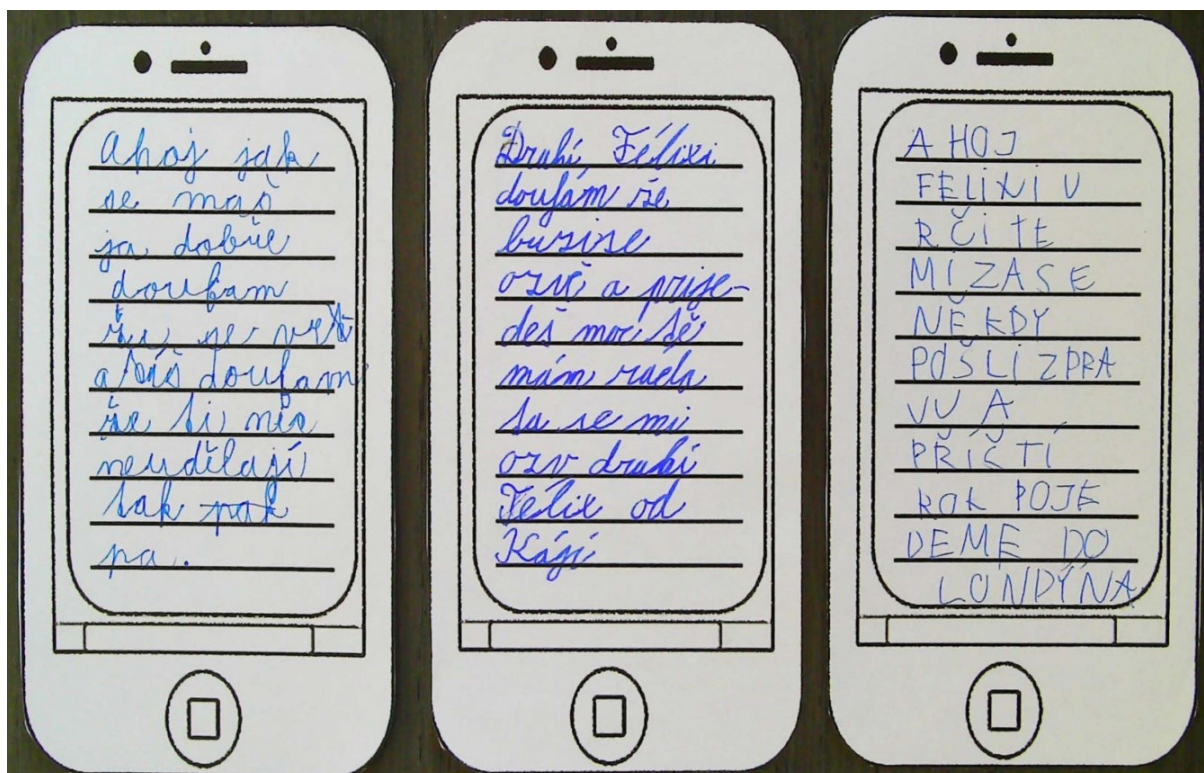 Ahoj jak
se maš
ja dobře
doufam
že se vrá
a tíš doufam
že ti nic
neudělají
tak pak
pa.
Druhí Félixi
doufám že
buzise
ozvě a prije-
deš moc tě
mám rada
ta se mi
ozv druhí
Félix od
Kájí
A HOJ
FELIXI U
RČITE
MI ZASE
NĚKDY
POŠLI ZPRA
VU A
PŘÍČTÍ
ROK POJE
DEME DO
LONDÝNA